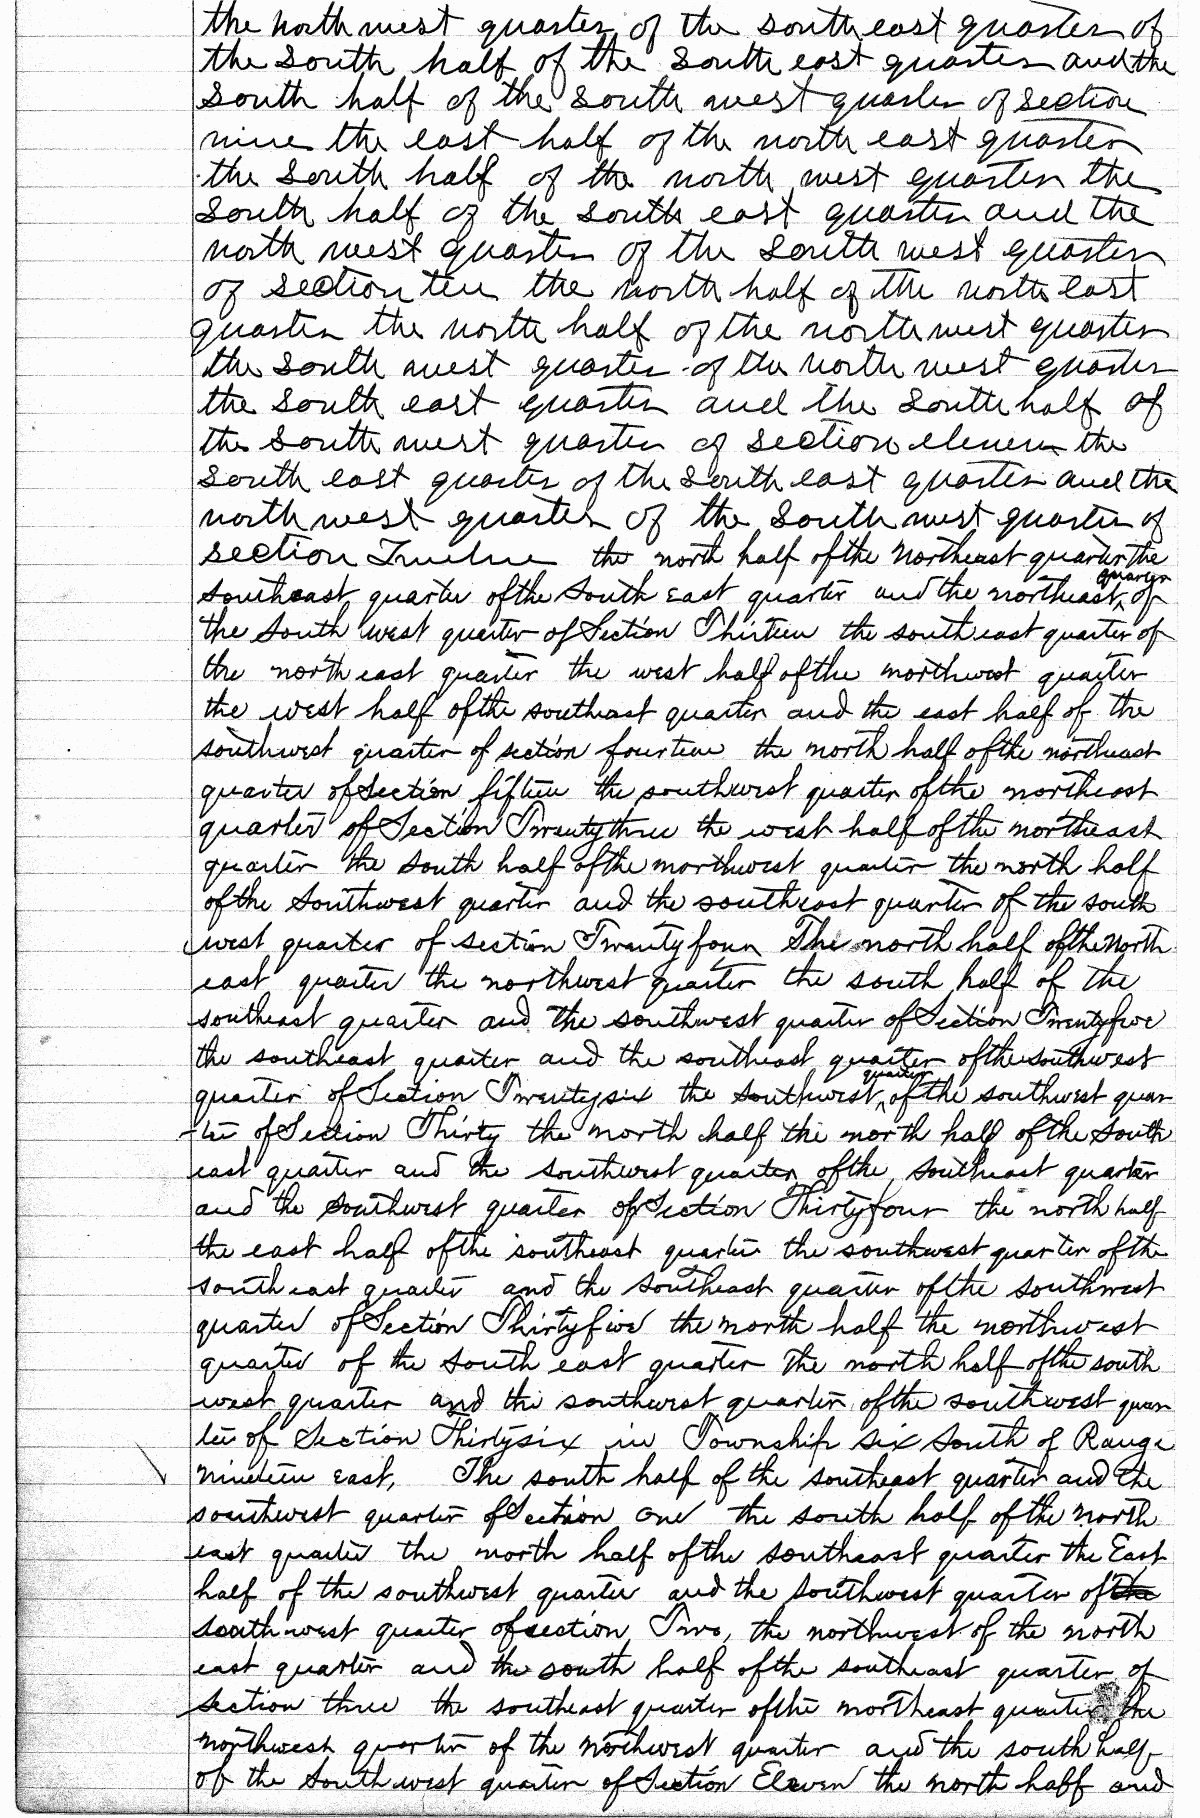 the north west quarter of the south east quarter of
the south half of the south east quarter and the
south half of the south west quarter of section
nine the east half of the north east quarter
the south half of the north west quarter the
south half of the south east quarter and the
north west quarter of the south west quarter
of section ten the north half of the north east
quarter the north half of the north west quarter
the south west quarter of the north west quarter
the south east quarter and the south half of
the south west quarter of section eleven the
south east quarter of the south east quarter and the
north west quarter of the south west quarter of
section Twelve the north half of the Northeast quarter the
southeast quarter of the South East quarter and the northeast quarter of
the South west quarter of Section Thirteen the southeast quarter of
the north east quarter the west half of the northwest quarter
the west half of the southeast quarter and the east half of the
southwest quarter of section fourteen the north half of the northeast
quarter of Section fifteen the southwest quarter of the northeast
quarter of Section Twentythree the west half of the northeast
quarter the south half of the northwest quarter the north half
of the Southwest quarter and the southeast quarter of the south
west quarter of section Twentyfour The north half of the North
east quarter the northwest quarter the south half of the
southeast quarter and the southwest quarter of Section Twentyfive
the southeast quarter and the southeast quarter of the southwest
quarter of Section Twentysix the southwest quarter of the southwest quar
-ter of Section Thirty the north half the north half of the South
east quarter and the southwest quarter of the southeast quarter
and the southwest quarter of Section Thirtyfour the north half
the east half of the southeast quarter the southwest quarter of the
south east quarter and the southeast quarter of the southwest
quarter of Section Thirtyfive the north half the northwest
quarter of the south east quarter the north half of the south
west quarter and the southwest quarter of the southwest quar
ter of Section Thirtysix in Township six South of Range
Nineteen East, The south half of the southeast quarter and the
southwest quarter of Section one the south half of the North
east quarter the north half of the southeast quarter the East
half of the southwest quarter and the southwest quarter of the
southwest quarter of section Two, the northwest of the north
east quarter and the south half of the southeast quarter of
section three the southeast quarter of the northeast quarter the
northwest quarter of the northwest quarter and the south half
of the southwest quarter of Section Eleven the north half and